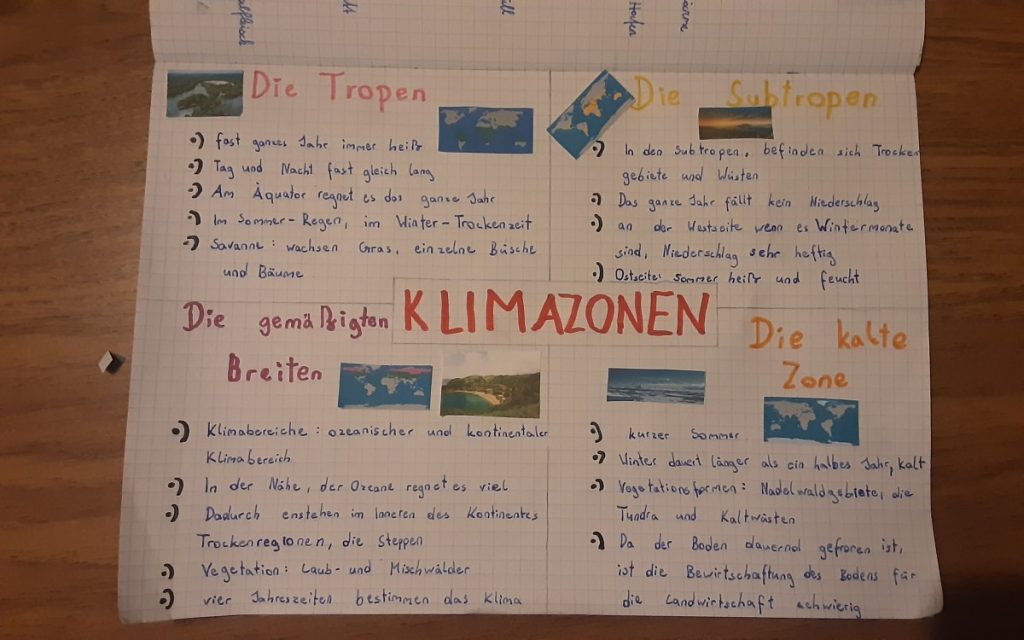 Hafen
Die Tropen
fast ganzes Jahr immer heiß
Tag und Nacht fast gleich lang
Am Äquator regnet es das ganze Jahr
Im Sommer-Regen, im Winter-Trockenzeit
Savanne: wachsen Gras, einzelne Büsche
und Bäume
Die Subtropen
In den Subtropen, befinden sich Trocken
gebiete und Wüsten
Das ganze Jahr fällt kein Niederschlag
an der Westseite wenn es Wintermonate
sind, Niederschlag sehr heftig
Ostseite: sommer heiß und feucht
KLIMAZONEN
Die gemäßigten
Breiten
Klimabereiche: ozeanischer und kontinentaler
Klimabereich
In der Nähe, der Ozeane regnet es viel
Dadurch enstehen im Inneren des Kontinentes
Trockenregionen, die Steppen
Vegetation: Laub- und Mischwälder
vier Jahreszeiten bestimmen das Klima
Die kalte
Zone
kurzer Sommer
Winter dauert länger als ein halbes Jahr, kalt
Vegetationsformen: Nadelwaldgebiete, die
Tundra und Kaltwüsten
Da der Boden dauernd gefroren ist,
ist die Bewirtschaftung des Bodens für
die Landwirtschaft schwierig